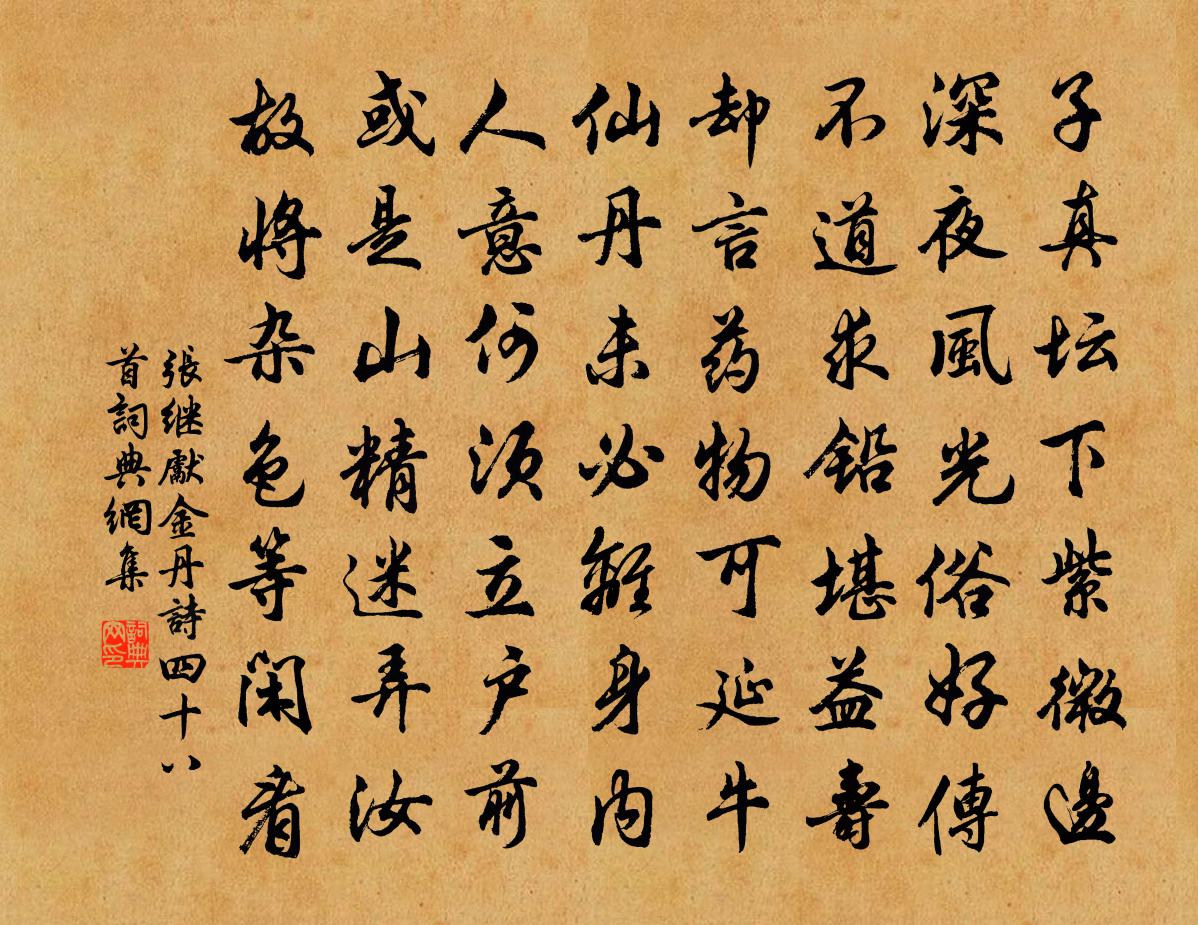 子真坛下紫微邊
深夜風光俗好傳
不道求鉛堪益壽
却言药物可延牛
仙丹未必離身内
人意何須立户前
或是山精迷弄汝
故将杂色等閑看
張继獻金丹詩四十八
首詞典網集
詞典网印